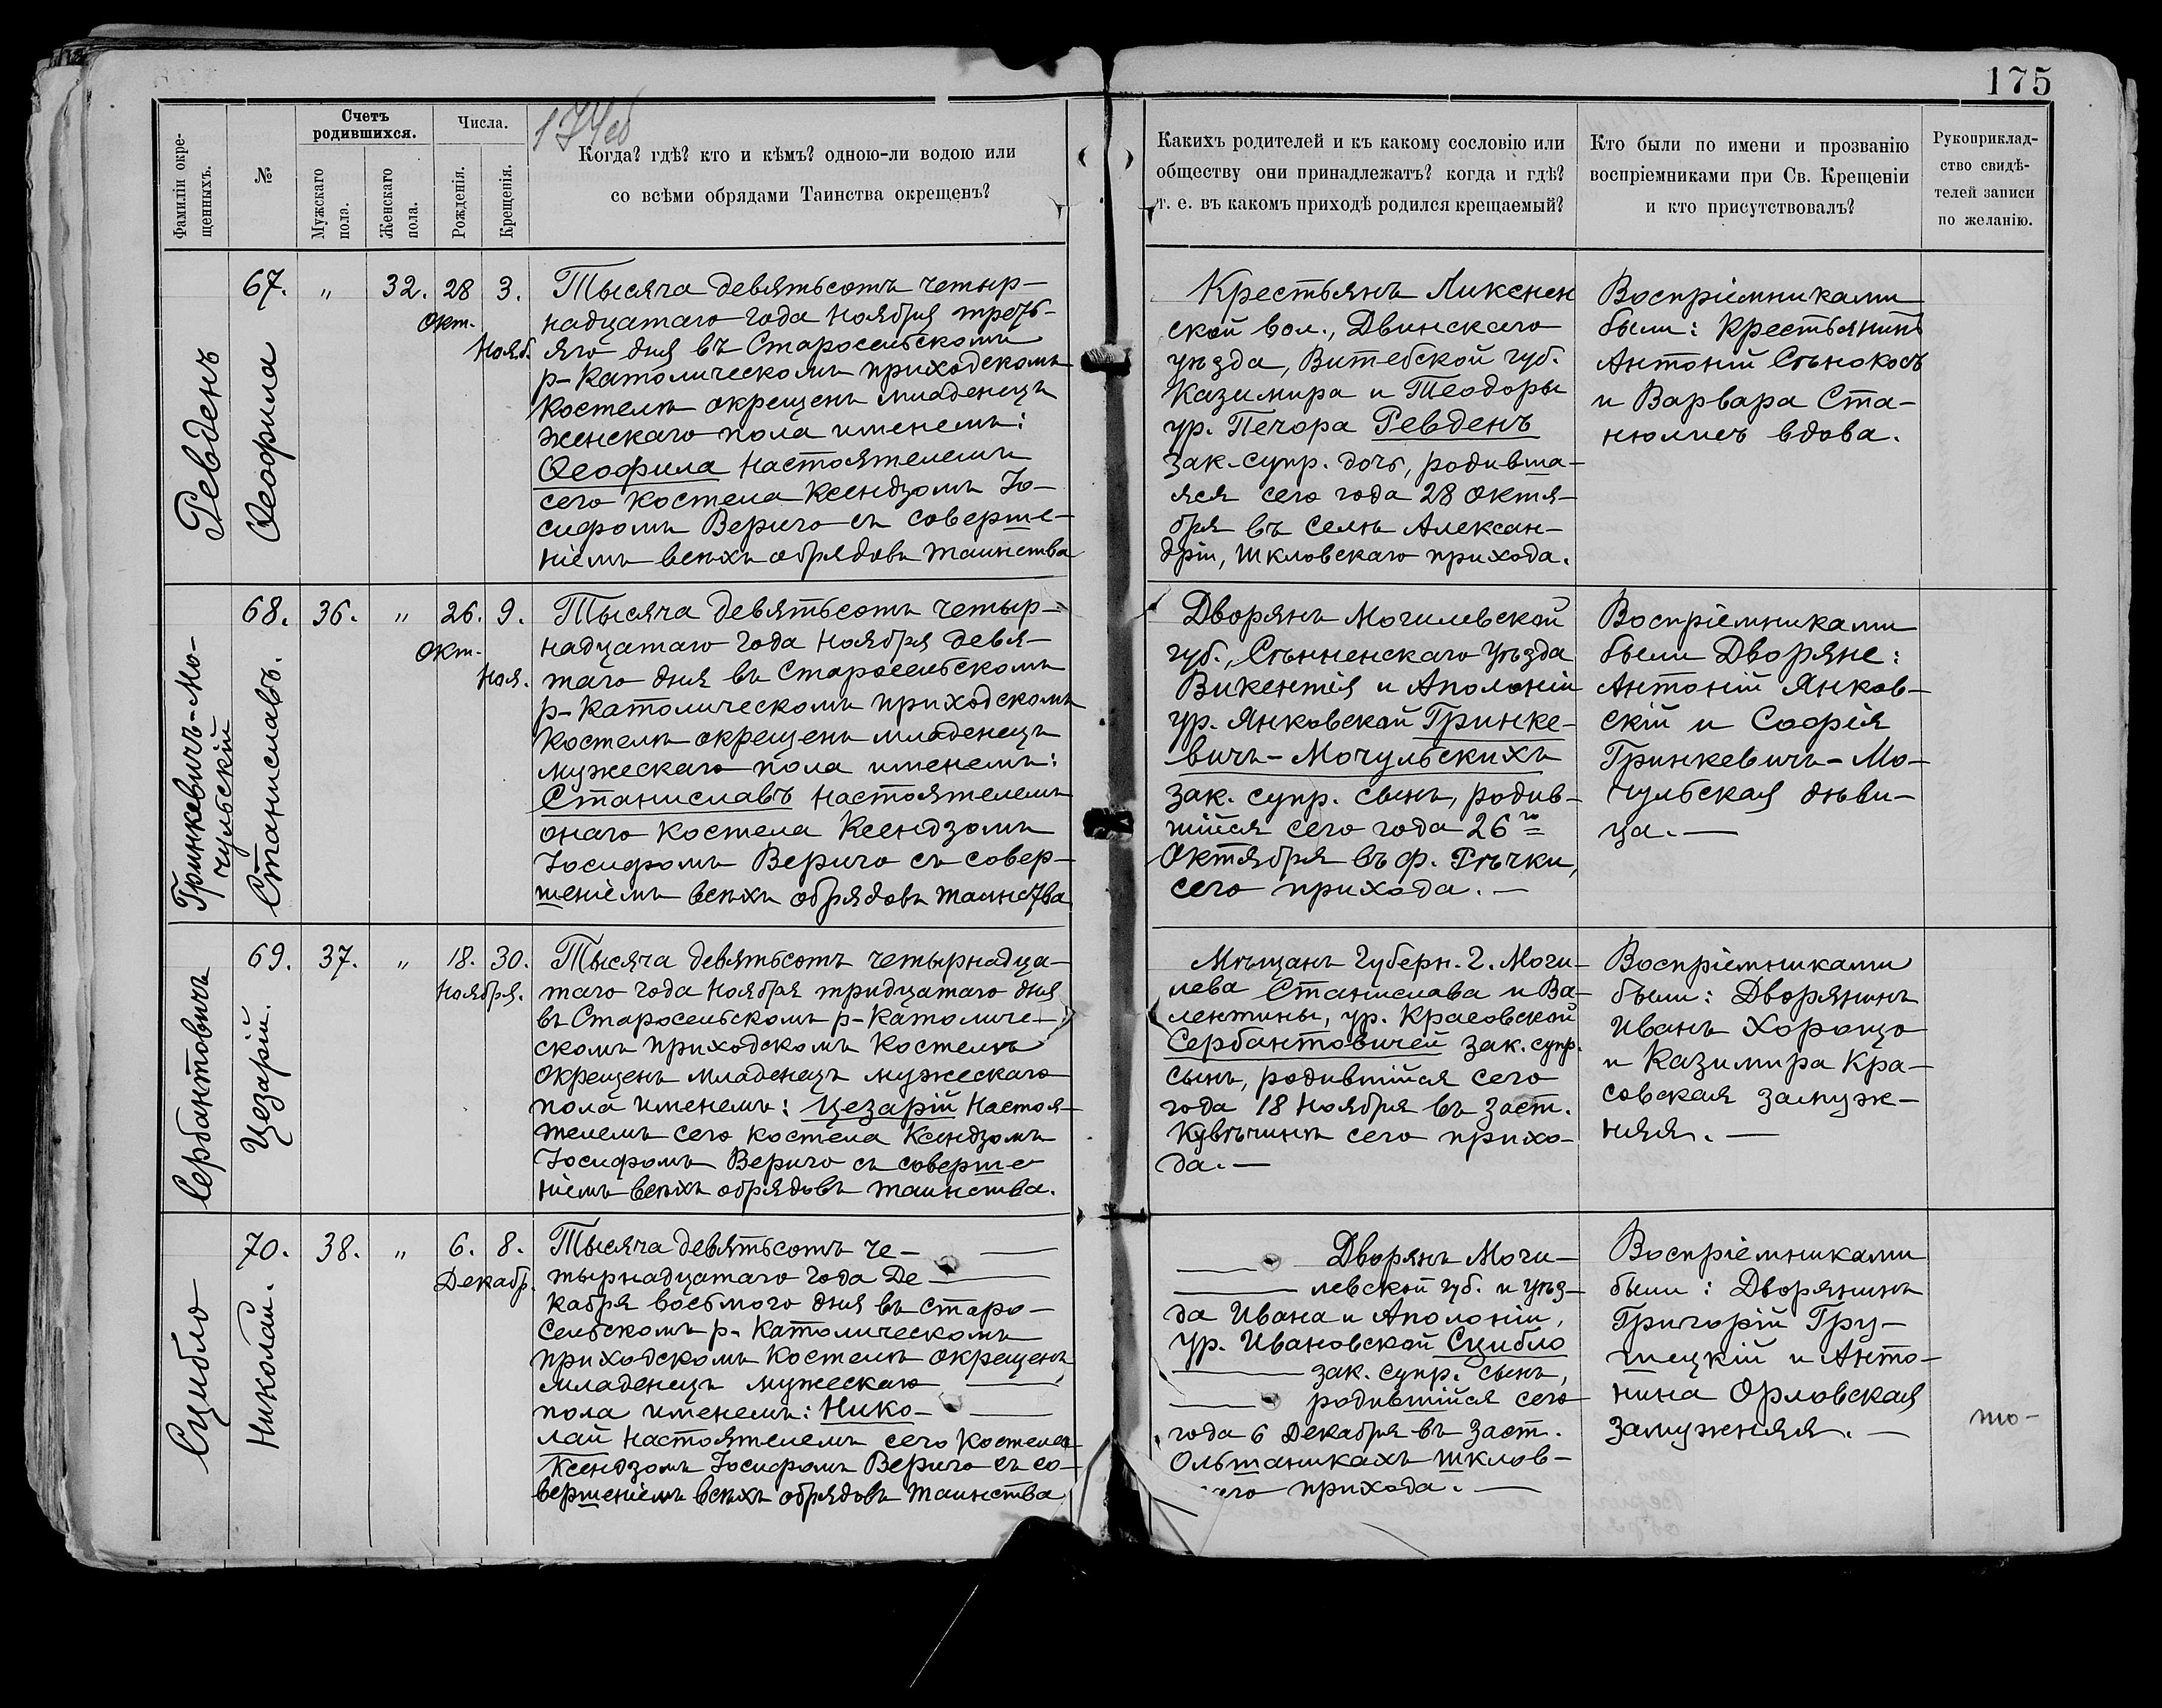 175
174об
Фамиліи окре-
щенныхъ.
№
Счетъ
родившихся.
Мужскаго
пола.
Женскаго
пола.
Числа.
Рожденія.
Крещенія.
Когда? гдѣ? кто и кѣмъ? одною-ли водою или
со всѣми обрядами Таинства окрещенъ?
Какихъ родителей и къ какому сословію или
обществу они принадлежатъ? когда и гдѣ?
т. е. въ какомъ приходѣ родился крещаемый?
Кто были по имени и прозванію
воспріемниками при Св. Крещеніи
и кто присутствовалъ?
Рукоприклад-
ство свидѣ-
телей записи
по желанію.
Ревденъ
Ѳеофила
67. „ 32. 28 3.
Окт.
Нояб.
Тысяча девятьсотъ четыр-
надцатаго года Ноября треть-
яго дня въ Старосельскомъ
р-Католическомъ приходскомъ
Костелѣ окрещенъ младенецъ
женскаго пола именемъ:
Ѳеофила Настоятелемъ
сего Костела Ксендзомъ Іо-
сифомъ Верыго съ соверше-
ніемъ всѣхъ обрядовъ таинства
Крестьянъ Ликснен
ской вол., Двинскаго
уѣзда, Витебской губ.
Казимира и Теодоры
ур. Печора Ревденъ
зак. супр. дочь, родивша-
яся сего года 28 Октя-
бря въ селѣ Алексан-
дріи, Шкловскаго прихода.
Воспріемниками
были: Крестьянинъ
Антоній Сѣнокосъ
и Варвара Ста-
нюличъ вдова.
Гринкевичъ-Мо-
чульскій
Станиславъ.
68. 36. „ 26. 9.
Окт.
Ноя.
Тысяча девятьсотъ четыр-
надцатаго года Ноября девя-
таго дня въ Старосельскомъ
р-Католическомъ приходскомъ
Костелѣ окрещенъ младенецъ
мужескаго пола именемъ:
Станиславъ Настоятелемъ
онаго Костела Ксендзомъ
Іосифомъ Верыго съ совер-
шеніемъ всѣхъ обрядовъ таинства
Дворянъ Могилевской
губ., Сѣнненскаго уѣзда
Викентія и Аполоніи
ур. Янковской Гринке-
вичъ-Мочульскихъ
зак. супр. сынъ, родив-
шійся сего года 26го
Октября въ ф. Рѣчки,
сего прихода. —
Воспріемниками
были Дворяне:
Антоній Янков-
скій и Софія
Гринкевичъ-Мо-
чульская дѣви-
ца. —
Сербантовичъ
Цезарій.
69. 37. „ 18. 30.
Ноября.
Тысяча девятьсотъ четырнадца-
таго года Ноября тридцатаго дня
въ Старосельскомъ р-Католиче-
скомъ приходскомъ Костелѣ
окрещенъ младенецъ мужескаго
пола именемъ: Цезарій Настоя-
телемъ сего Костела Ксендзомъ
Іосифомъ Верыго съ соверше-
ніемъ всѣхъ обрядовъ таинства.
Мѣщанъ Губерн. г. Моги-
лева Станислава и Ва-
лентины, ур. Красовской
Сербантовичей зак. супр.
сынъ, родившійся сего
года 18 Ноября въ заст.
сего прихо-
да. —
Воспріемниками
были: Дворянинъ
Иванъ Хорошо
и Казимира Кра-
совская замуж-
няя. —
Сцибло
Николай.
70. 38. „ 6. 8.
Декабр.
Тысяча девятьсотъ че-
тырнадцатаго года Де-
кабря восьмого дня въ Старо-
сельскомъ р-Католическомъ
приходскомъ Костелѣ окрещенъ
младенецъ мужескаго
пола именемъ: Нико-
лай Настоятелемъ сего Костела
Ксендзомъ Іосифомъ Верыго съ со-
вершеніемъ всѣхъ обрядовъ таинства
Дворянъ Моги-
левской губ. и уѣз-
да Ивана и Аполоніи,
ур. Ивановской Сцибло
зак. супр. сынъ,
родившійся сего
года 6 Декабря въ заст.
Ольшаникахъ Шклов-
прихода. —
Воспріемниками
были: Дворянинъ
Григорій Гру-
шецкій и Анто-
нина Орловская
замужняя. —
то-